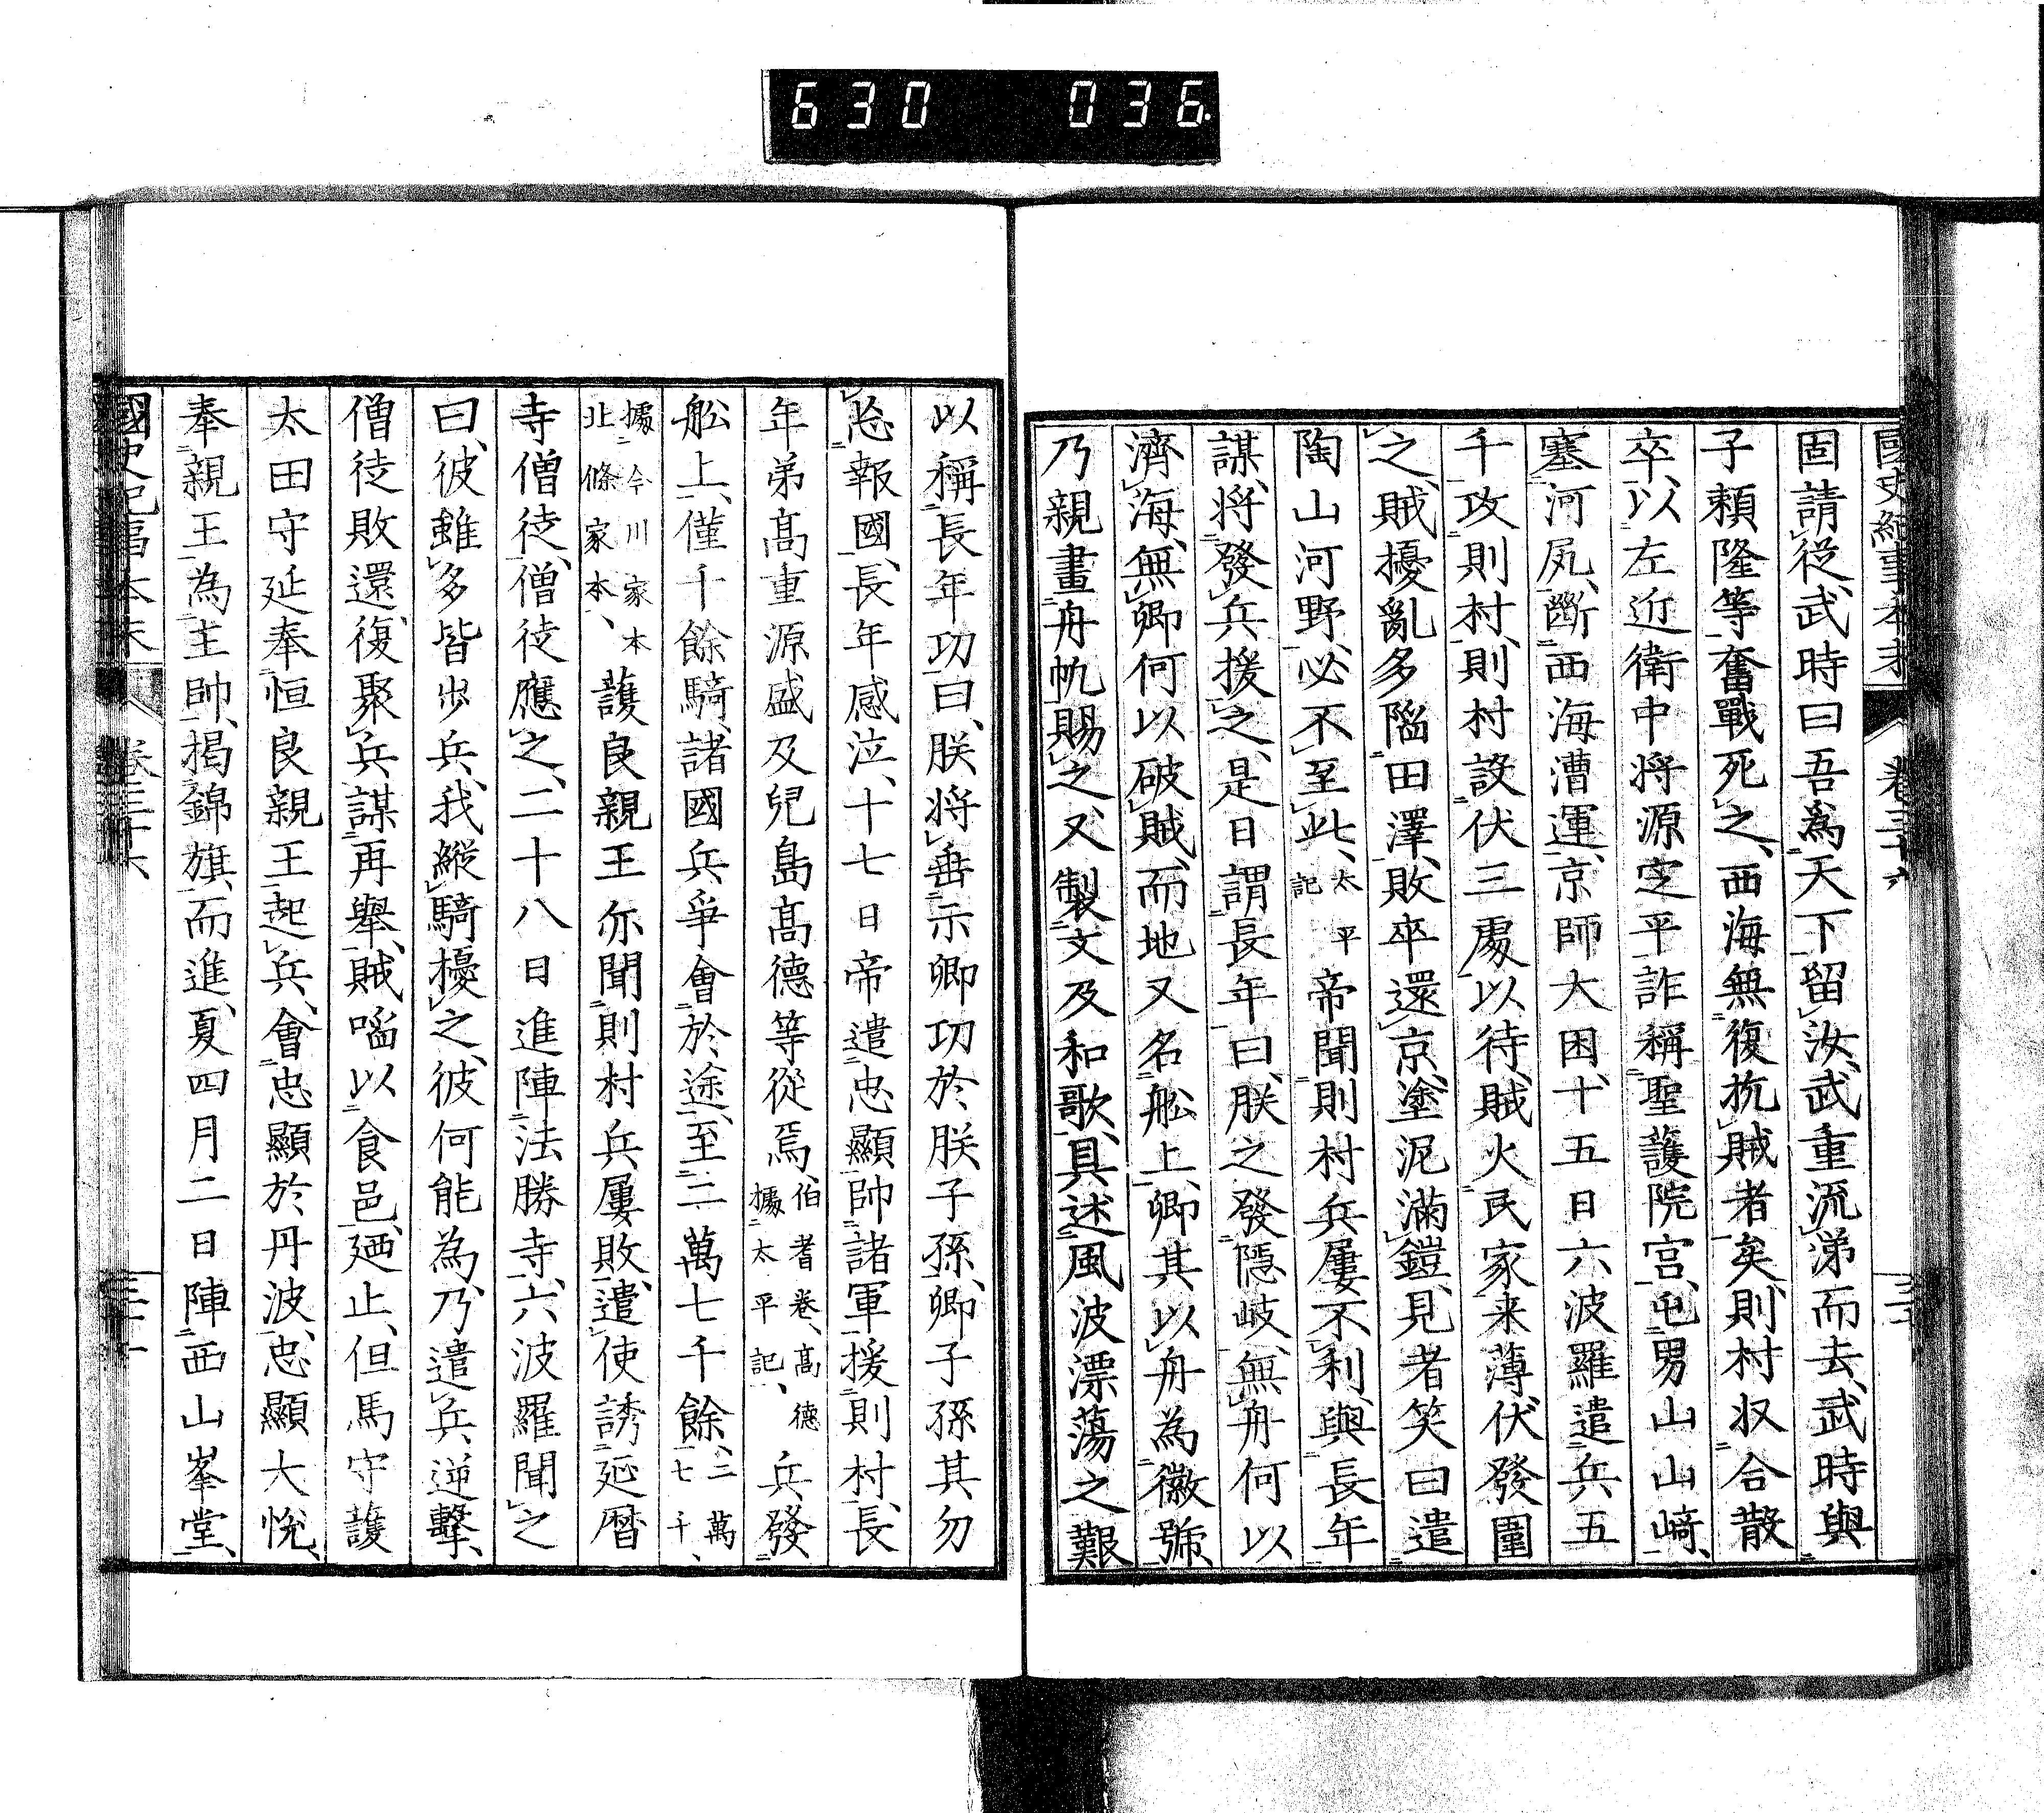 630 036
國史紀事本末 卷三十六
固請從、武時曰吾爲天下留汝、武重流涕而去、武時與
子賴隆等奮戰死之、西海無復抗賊者矣、則村収合散
卒、以左近衛中将源定平詐稱聖護院宮、屯男山山﨑、
塞河尻、断西海漕運、京師大困、十五日六波羅遣兵五
千攻則村、則村設伏三處以待、賊火民家来薄、伏發圍
之、賊擾亂多陷田澤、敗卒還京、塗泥滿鎧、見者笑曰遣
陶山河野、必不至此、太平記 帝聞則村兵屢不利、與長年
謀、将發兵援之、是日謂長年曰、朕之發隱岐、無舟何以
濟海、無卿何以破賊、而地又名舩上、卿其以舟為徽號、
乃親畫舟帆賜之、又製文及和歌、具述風波漂蕩之艱
以稱長年功曰、朕将垂示卿功於朕子孫、卿子孫其勿
忘報國、長年感泣、十七日帝遣忠顯帥諸軍援則村、長
年弟髙重源盛及兒島髙德等從焉、伯耆卷、髙德據太平記、 兵發
舩上、僅千餘騎、諸國兵爭會於途、至二萬七千餘、二萬七千、
據今川家本北條家本、 護良親王亦聞則村兵屢敗、遣使誘延暦
寺僧徒、僧徒應之、二十八日進陣法勝寺、六波羅聞之
曰、彼雖多皆步兵、我縱騎擾之、彼何能為、乃遣兵逆擊、
僧徒敗還、復聚兵謀再舉、賊啗以食邑、廼止、但馬守護
太田守延奉恒良親王起兵、會忠顯於丹波、忠顯大悅、
奉親王為主帥、揭錦旗而進、夏四月二日陣西山峯堂、
國史紀事本末 卷三十六